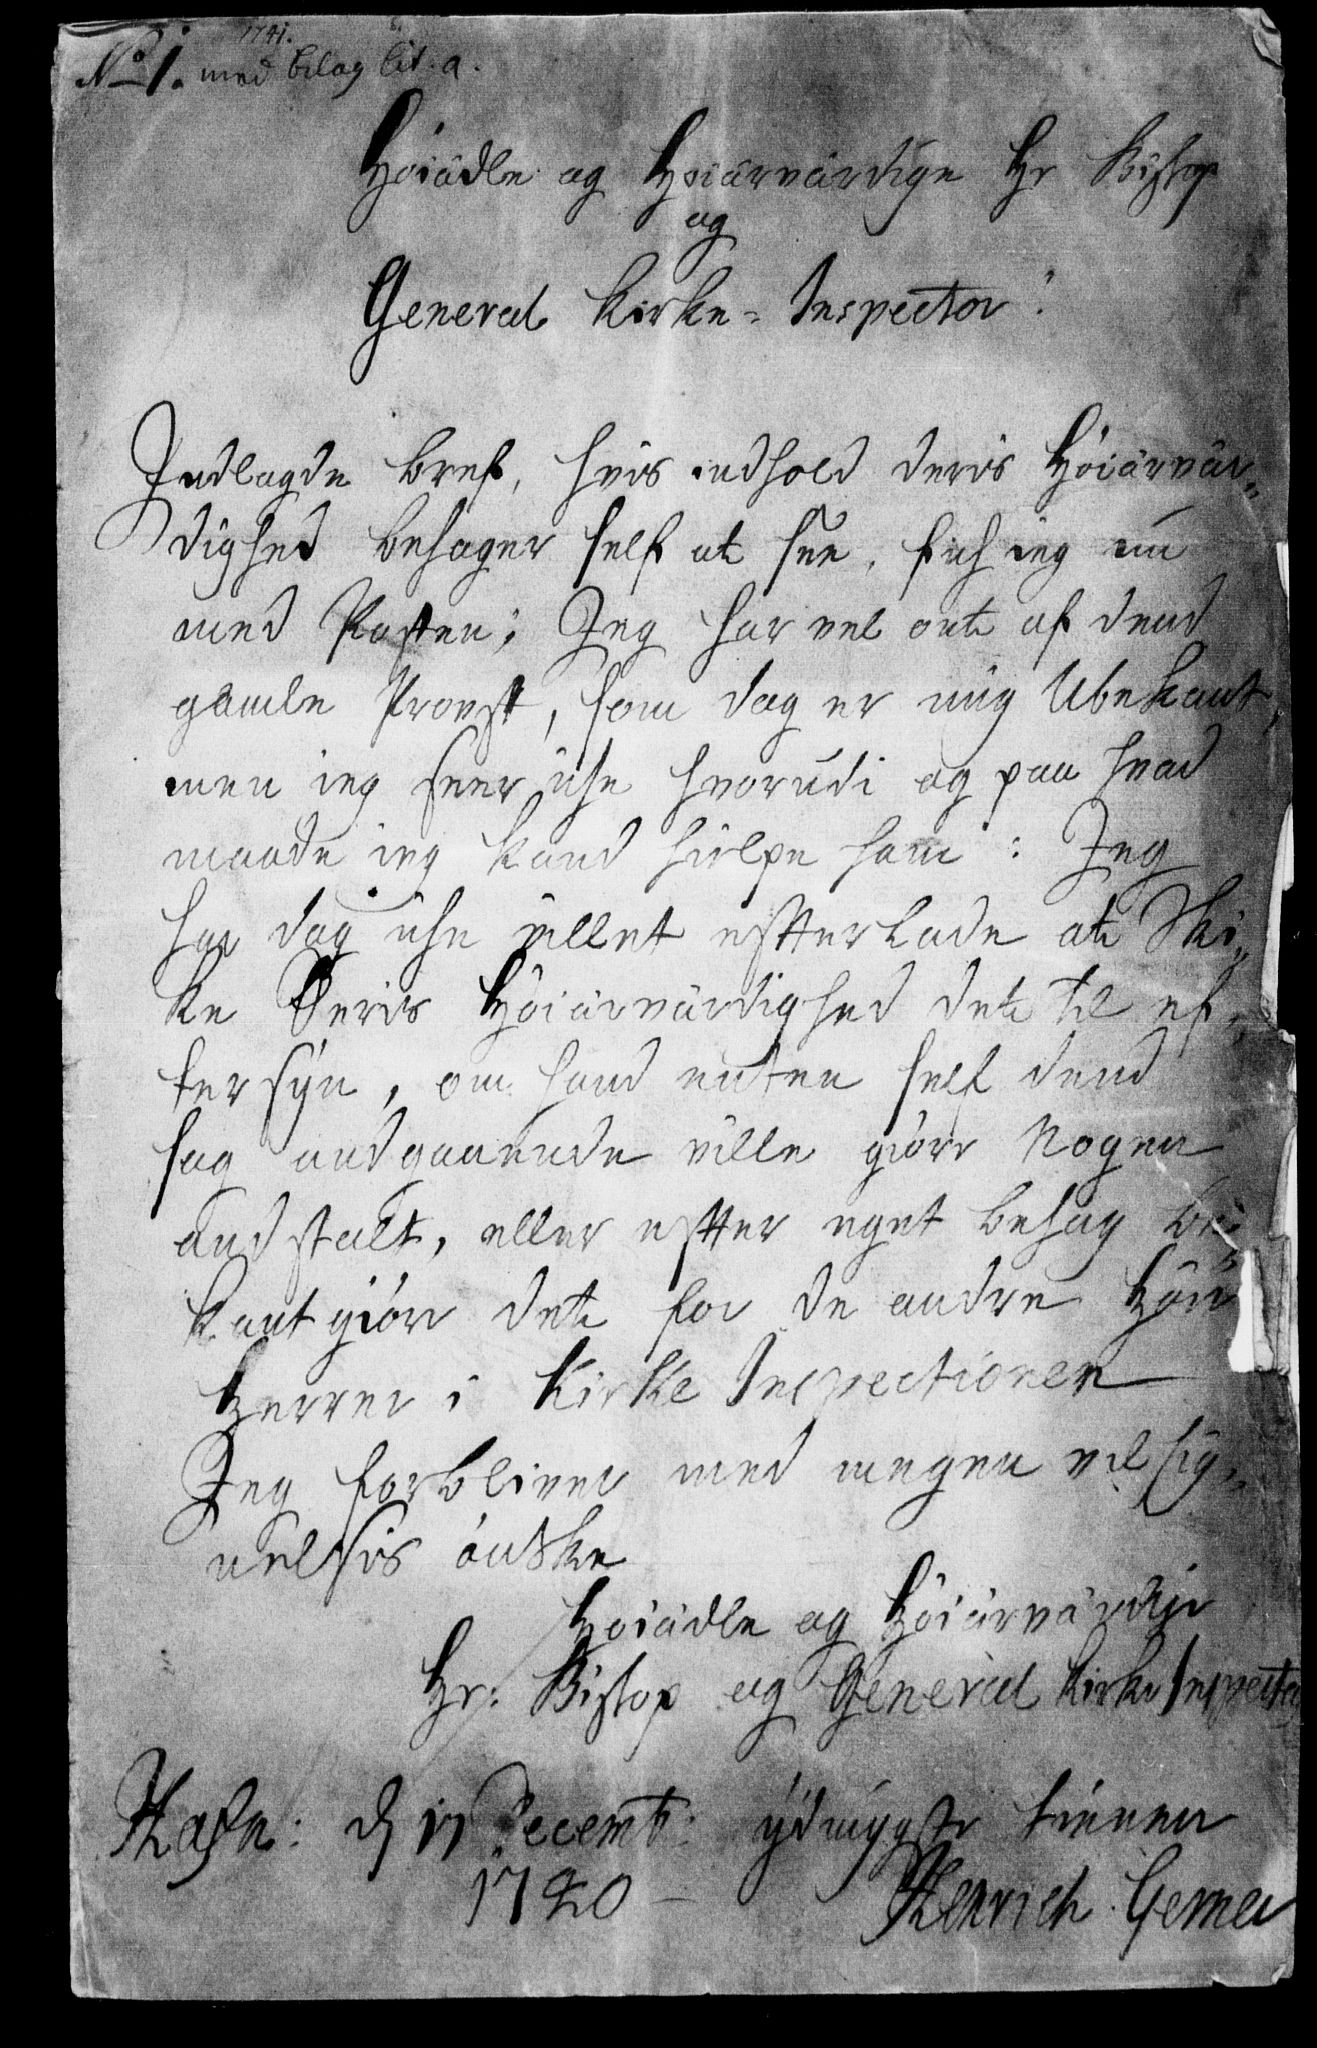 1741.
No 1. med bilag lit. a.
Höiädle og Höiärværdige Hr Bisdop
og
General Kirke-Inspector!
Indlagde bref, hvis indhold deris Höiärvär-
dighed behager self at see, fich ieg nu
med Posten; Jeg har vel ont af dend
gamle Provst, som dog er mig Ubekant,
men ieg seer iche hvorudi og paa hvad
maade ieg kand hielpe ham: Jeg
har dog iche villet effterlade at Ski-
ke Deris Höiärværdighed det til ef-
tersÿn, om hand enten self dend
sag andgaaende ville giöre Nogen
andstalt, eller effter eget behag be-
kant giöre det for de andre Höie
Herrer i Kirke Inspectionen
Jeg forbliver med megen velsig-
nelsis önske
Höiädle og Höiärværdige
Hr: Bisdop og General Kirke Inspector
Hafn: d 17 Decemb: ÿdmÿgste tiener
1740 Henrich Gerner